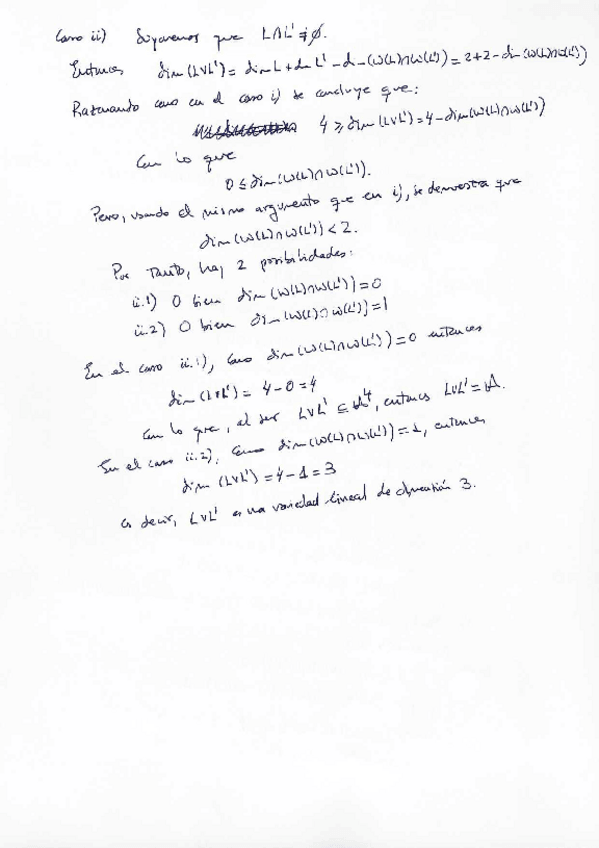 Caso ii) Supongamos que L∩L' ≠ ∅.
Entonces dim(L∨L') = dim L + dim L' - dim(W(L)∩W(L')) = 2+2-dim(W(L)∩W(L'))
Razonando como en el caso i) se concluye que:
4 ≥ dim(L∨L') = 4-dim(W(L)∩W(L'))
Con lo que
0 ≤ dim(W(L)∩W(L')).
Pero, usando el mismo argumento que en i), se demuestra que
dim(W(L)∩W(L')) < 2.
Por tanto, hay 2 posibilidades:
ii.1) O bien dim(W(L)∩W(L')) = 0
ii.2) O bien dim(W(L)∩W(L')) = 1
En el caso ii.1), como dim(W(L)∩W(L')) = 0 entonces
dim(L∨L') = 4-0 = 4
Con lo que, al ser L∨L' ⊆ A⁴, entonces L∨L' = A.
En el caso ii.2), como dim(W(L)∩W(L')) = 1, entonces
dim(L∨L') = 4-1 = 3
es decir, L∨L' es una variedad lineal de dimensión 3.